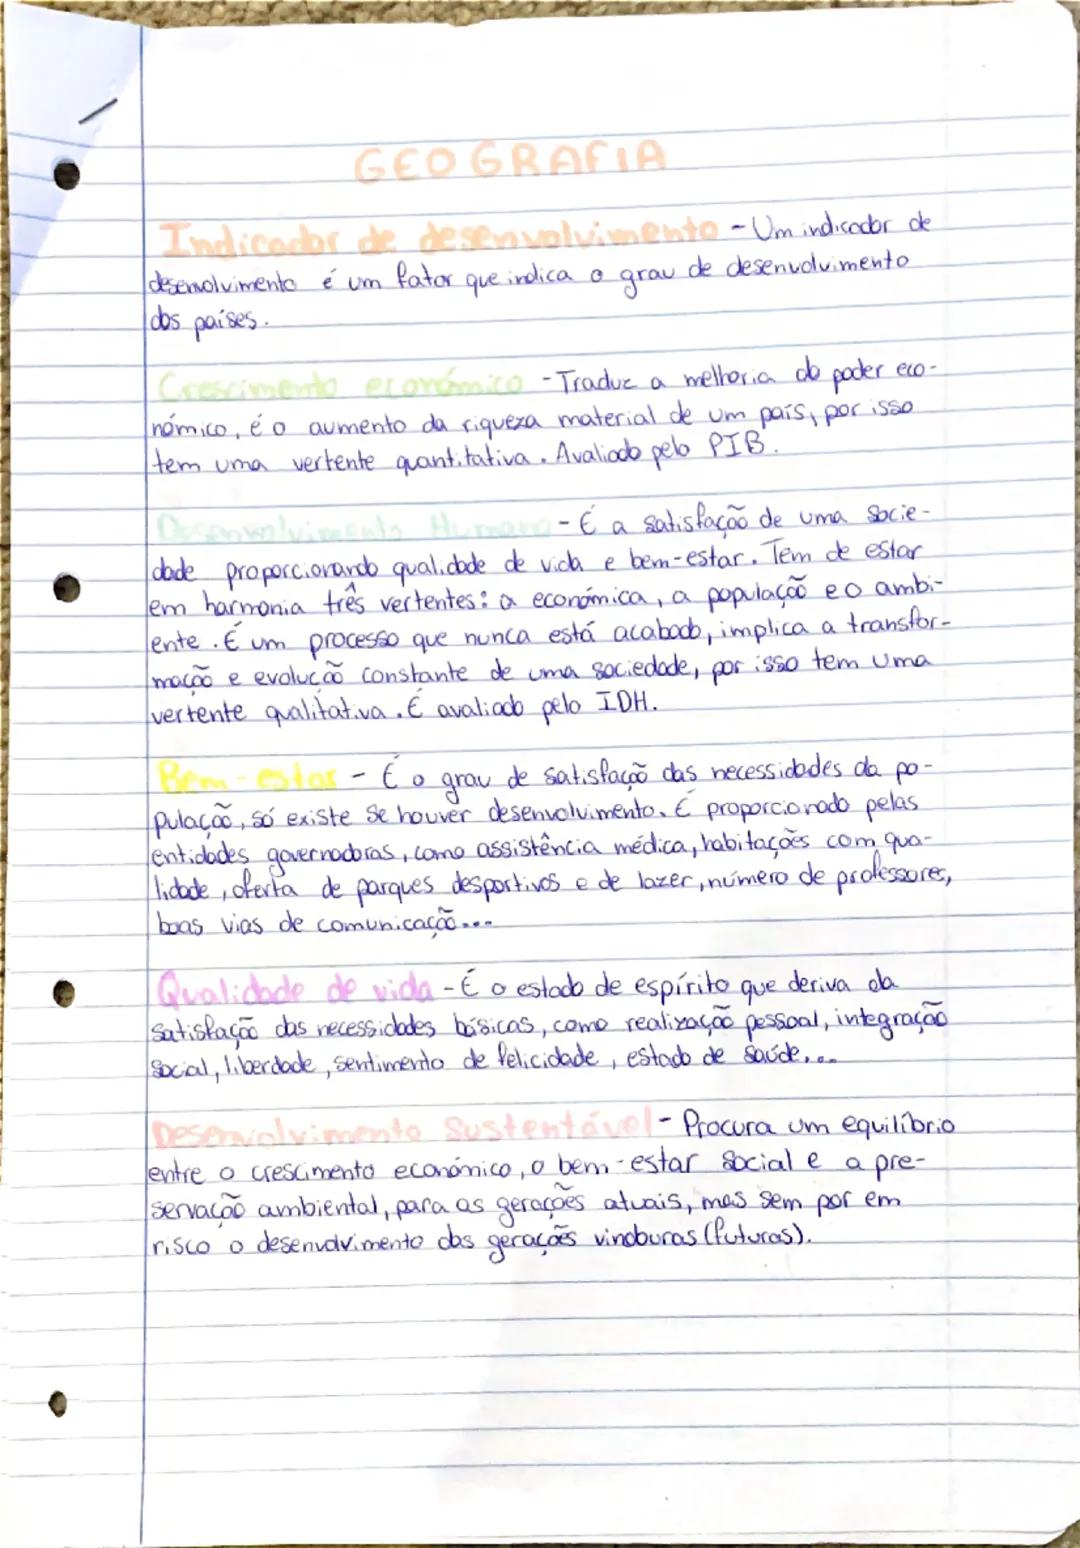 GEOGRAFIA
Indicador de desenvolvimento - Um indicador de
desenvolvimento é um fator que indica o grau de desenvolvimento
dos países.
Crescimento económico - Traduz a melhoria do poder eco-
nómico, é o aumento da riqueza material de um país, por isso
tem uma vertente quantitativa. Avaliado pelo PIB.
Desenvolvimento Humano - É a satisfação de uma socie-
dade proporcionando qualidade de vida e bem-estar. Tem de estar
em harmonia três vertentes: a económica, a população e o ambi-
ente. É um processo que nunca está acabado, implica a transfor-
mação e evolução constante de uma sociedade, por isso tem uma
vertente qualitativa. É avaliado pelo IDH.
Bem-estar - É o grau de satisfação das necessidades da po-
pulação, só existe se houver desenvolvimento. É proporcionado pelas
entidades governadoras, como assistência médica, habitações com qua-
lidade, oferta de parques desportivos e de lazer, número de professores,
boas vias de comunicação...
Qualidade de vida - É o estado de espírito que deriva da
satisfação das necessidades básicas, como realização pessoal, integração
social, liberdade, sentimento de felicidade, estado de saúde,...
Desenvolvimento Sustentável - Procura um equilíbrio
entre o crescimento económico, o bem-estar social e a pre-
servação ambiental, para as gerações atuais, mas sem por em
risco o desenvolvimento das gerações vindouras (futuras).